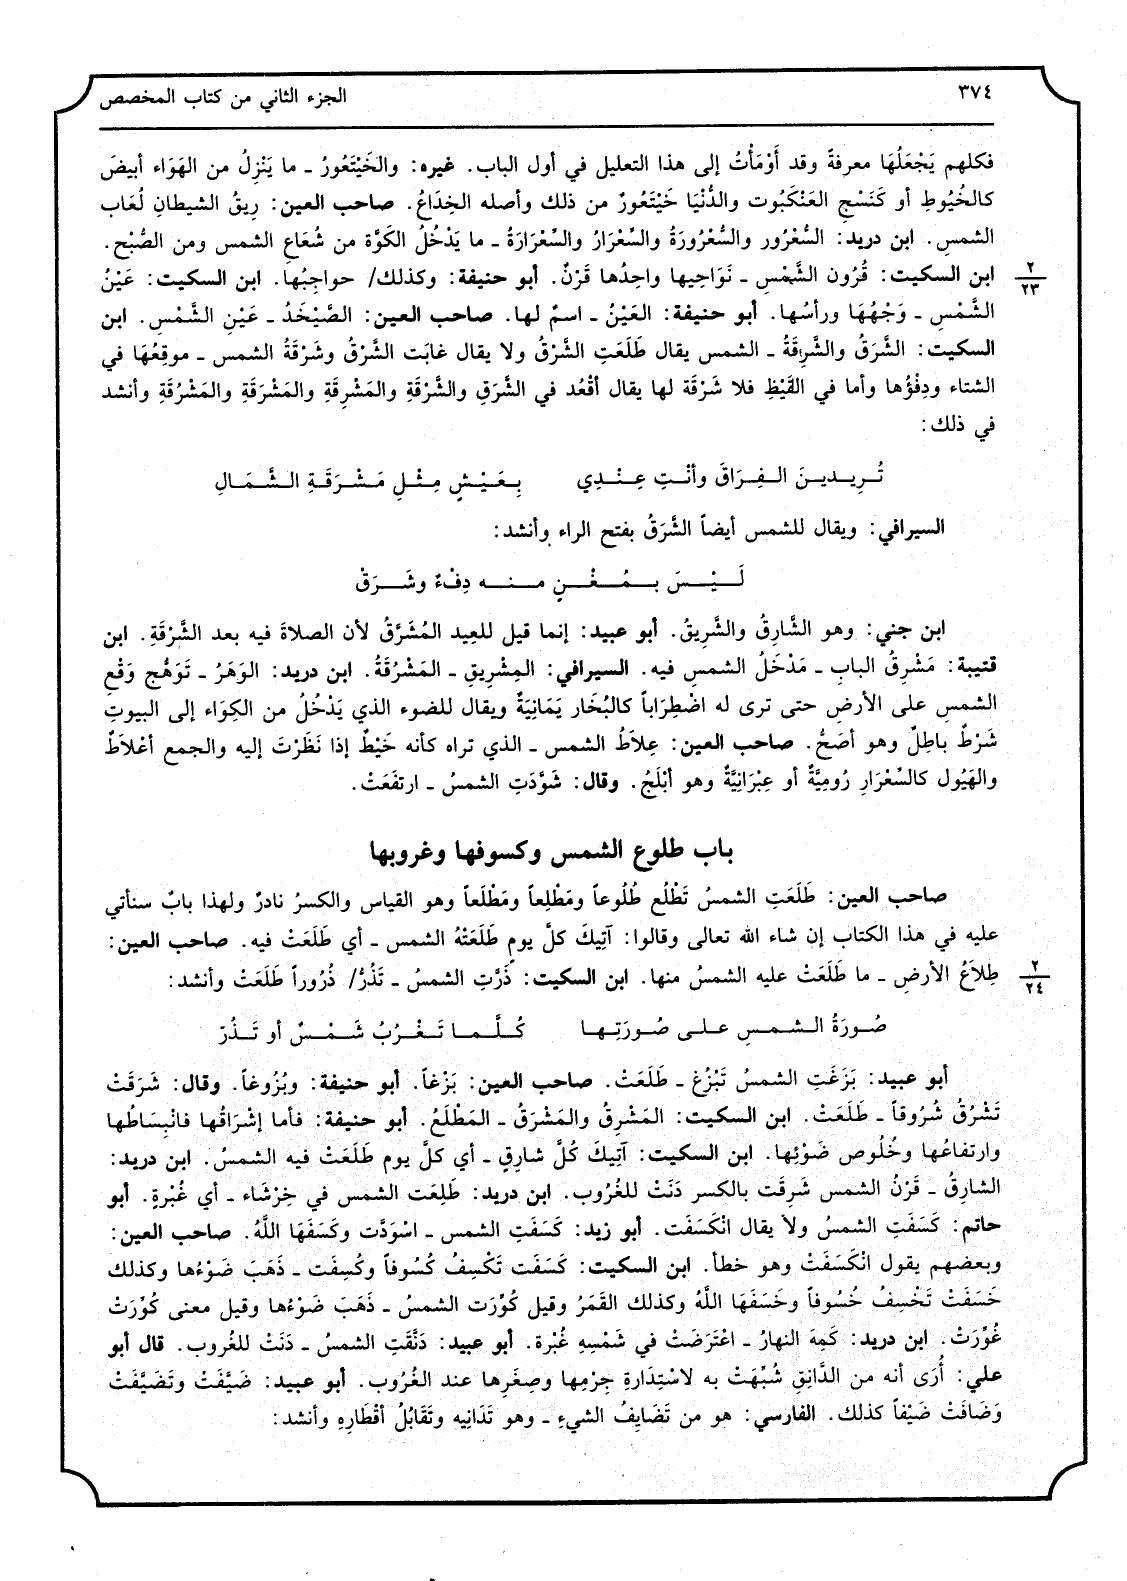 ٣٧٤
الجزء الثاني من كتاب المخصص
فكلهم يَجْعَلُهَا معرفةً وقد أَوْمَأْتُ إلى هذا التعليل في أول الباب. غيره: والخَيْتَعُورُ ـ ما يَنْزِلُ من الهَوَاء أبيضَ
كالخُيُوطِ أو كَنَسْجِ العَنْكَبُوت والدُّنْيَا خَيْتَعُورٌ من ذلك وأصله الخِدَاعُ. صاحب العين: رِيقُ الشيطانِ لُعَاب
الشمس. ابن دريد: السُّعْرُور والسُّعْرُورَةُ والسِّعْرَارُ والسِّعْرَارَةُ ـ ما يَدْخُلُ الكَوَّة من شُعَاعِ الشمس ومن الصُّبْح.
ابن السكيت: قُرُون الشَّمْسِ ـ نَوَاحِيها واحِدُها قَرْنٌ. أبو حنيفة: وكذلك/ حواجِبُها. ابن السكيت: عَيْنُ
٢
٢٣
الشَّمْسِ ـ وَجْهُهَا ورأسُها. أبو حنيفة: العَيْنُ ـ اسمٌ لها. صاحب العين: الصَّيْخَدُ ـ عَيْنِ الشَّمْسِ. ابن
السكيت: الشَّرَقُ والشَّرِقَةُ ـ الشمس يقال طَلَعَتِ الشَّرْقُ ولا يقال غابَت الشَّرْقُ وشَرْقَةُ الشمس ـ موقِعُهَا في
الشتاء ودِفْؤُها وأما في القَيْظِ فلا شَرْقَة لها يقال أقْعُد في الشَّرَقِ والشَّرْقَةِ والمَشْرِقَةِ والمَشْرَقَةِ والمَشْرُقَةِ وأنشد
في ذلك:
تُرِيدينَ الفِرَاقَ وأنْتِ عِنْدِي بِعَيْشٍ مِثْلِ مَشْرَقَةِ الشَّمَالِ
السيرافي: ويقال للشمس أيضاً الشَّرَقُ بفتح الراء وأنشد:
لَيْسَ بمُغْنٍ منه دِفْءٌ وشَرَقْ
ابن جني: وهو الشَّارِقُ والشَّرِيقُ. أبو عبيد: إنما قيل للعِيد المُشَرَّقُ لأن الصلاةَ فيه بعد الشَّرْقَةِ. ابن
قتيبة: مَشْرِقُ البابِ ـ مَدْخَلُ الشمس فيه. السيرافي: المِشْرِيقِ ـ المَشْرُقَةُ. ابن دريد: الوَهَرُ ـ تَوَهُّج وَقْعِ
الشمس على الأرضِ حتى ترى له اضْطِرَاباً كالبُخَار يَمَانِيَةٌ ويقال للضوء الذي يَدْخُلُ من الكِوَاء إلى البيوتِ
شَرْطٌ باطِلٌ وهو أصَحُّ. صاحب العين: عِلاَطُ الشمس ـ الذي تراه كأنه خَيْطٌ إذا نَظَرْتَ إليه والجمع أعْلاَطٌ
والهَيُول كالسِّعْرَارِ رُومِيَّةٌ أو عِبْرَانِيَّةٌ وهو أبْلَجُ. وقال: شَوَّدَتِ الشمسُ ـ ارتفَعَتْ.
باب طلوع الشمس وكسوفها وغروبها
صاحب العين: طَلَعَتِ الشمسُ تَطْلُع طُلُوعاً ومَطْلِعاً ومَطْلَعاً وهو القياس والكسرُ نادرٌ ولهذا بابٌ سنأتي
عليه في هذا الكتاب إن شاء الله تعالى وقالوا: آتِيكَ كلَّ يومٍ طَلَعَتْهُ الشمس ـ أي طَلَعَتْ فيه. صاحب العين:
طِلاَعُ الأرضِ ـ ما طَلَعَتْ عليه الشمسُ منها. ابن السكيت: ذَرَّتِ الشمسُ ـ تَذُرُّ/ ذُرُوراً طَلَعَتْ وأنشد:
٢
٢٤
صُورَةُ الشمسِ على صُورَتِها كُلَّما تَغْرُبُ شَمْسٌ أو تَذُرّ
أبو عبيد: بَزَغَتِ الشمسُ تَبْزُغ ـ طَلَعَتْ. صاحب العين: بَزْغاً. أبو حنيفة: وبُزُوغاً. وقال: شَرَقَتْ
تَشْرُقُ شُرُوقاً ـ طَلَعَتْ. ابن السكيت: المَشْرِقُ والمَشْرَقُ ـ المَطْلَعُ. أبو حنيفة: فأما إشْرَاقُها فانْبِسَاطُها
وارتفاعُها وخُلُوص ضَوْئِها. ابن السكيت: آتِيكَ كُلَّ شارِقٍ ـ أي كلَّ يوم طَلَعَتْ فيه الشمسُ. ابن دريد:
الشارِقُ ـ قَرْنُ الشمس شَرِقَت بالكسر دَنَتْ للغُرُوب. ابن دريد: طَلِعَت الشمس في خِرْشَاء ـ أي غُبْرةٍ. أبو
حاتم: كَسَفَتِ الشمسُ ولاَ يقال انْكَسَفَت. أبو زيد: كَسَفَتِ الشمس ـ اسْوَدَّت وكَسَفَهَا اللَّهُ. صاحب العين:
وبعضهم يقول انْكَسَفَتْ وهو خطأ. ابن السكيت: كَسَفَت تَكْسِفُ كُسُوفاً وكُسِفَت ـ ذَهَبَ ضَوْءُها وكذلك
خَسَفَتْ تَخْسِفُ خُسُوفاً وخَسَفَهَا اللَّهُ وكذلك القَمَرُ وقيل كُوِّرَت الشمسُ ـ ذَهَبَ ضَوْءُها وقيل معنى كُوِّرَتْ
غُوِّرَتْ. ابن دريد: كَمِهَ النهارُ ـ اعْتَرَضَتْ في شَمْسِهِ غُبْرة. أبو عبيد: دَنَّقَتِ الشمسُ ـ دَنَتْ للغُروب. قال أبو
علي: أُرَى أنه من الدَّانِقِ شُبِّهَتْ به لاسْتِدَارةِ جِرْمِها وصِغَرِها عند الغُرُوب. أبو عبيد: ضَيَّفَتْ وتَضَيَّفَتْ
وَضَافَتْ ضَيْفاً كذلك. الفارسي: هو من تَضَايِفُ الشيءِ ـ وهو تَدَانِيه وتَقَابُلُ أقْطَارِهِ وأنشد: